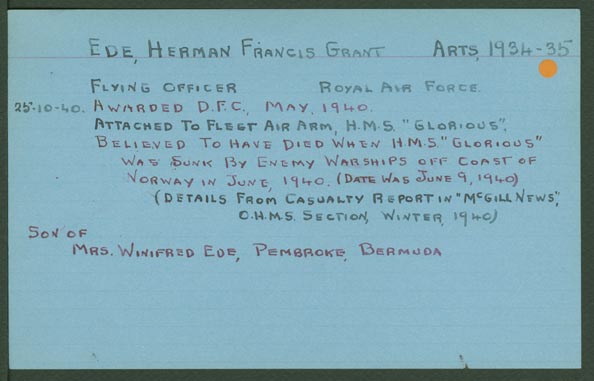 EDE, HERMAN FRANCIS GRANT ARTS, 1934-35
FLYING OFFICER ROYAL AIR FORCE.
25-10-40. AWARDED D.F.C., MAY, 1940.
ATTACHED TO FLEET AIR ARM, H.M.S. "GLORIOUS",
BELIEVED TO HAVE DIED WHEN H.M.S. "GLORIOUS"
WAS SUNK BY ENEMY WARSHIPS OFF COAST OF
NORWAY IN JUNE, 1940. (DATE WAS JUNE 9, 1940)
(DETAILS FROM CASUALTY REPORT IN "MCGILL NEWS",
O.H.M.S. SECTION, WINTER, 1940)
SON OF
MRS. WINIFRED EDE, PEMBROKE, BERMUDA